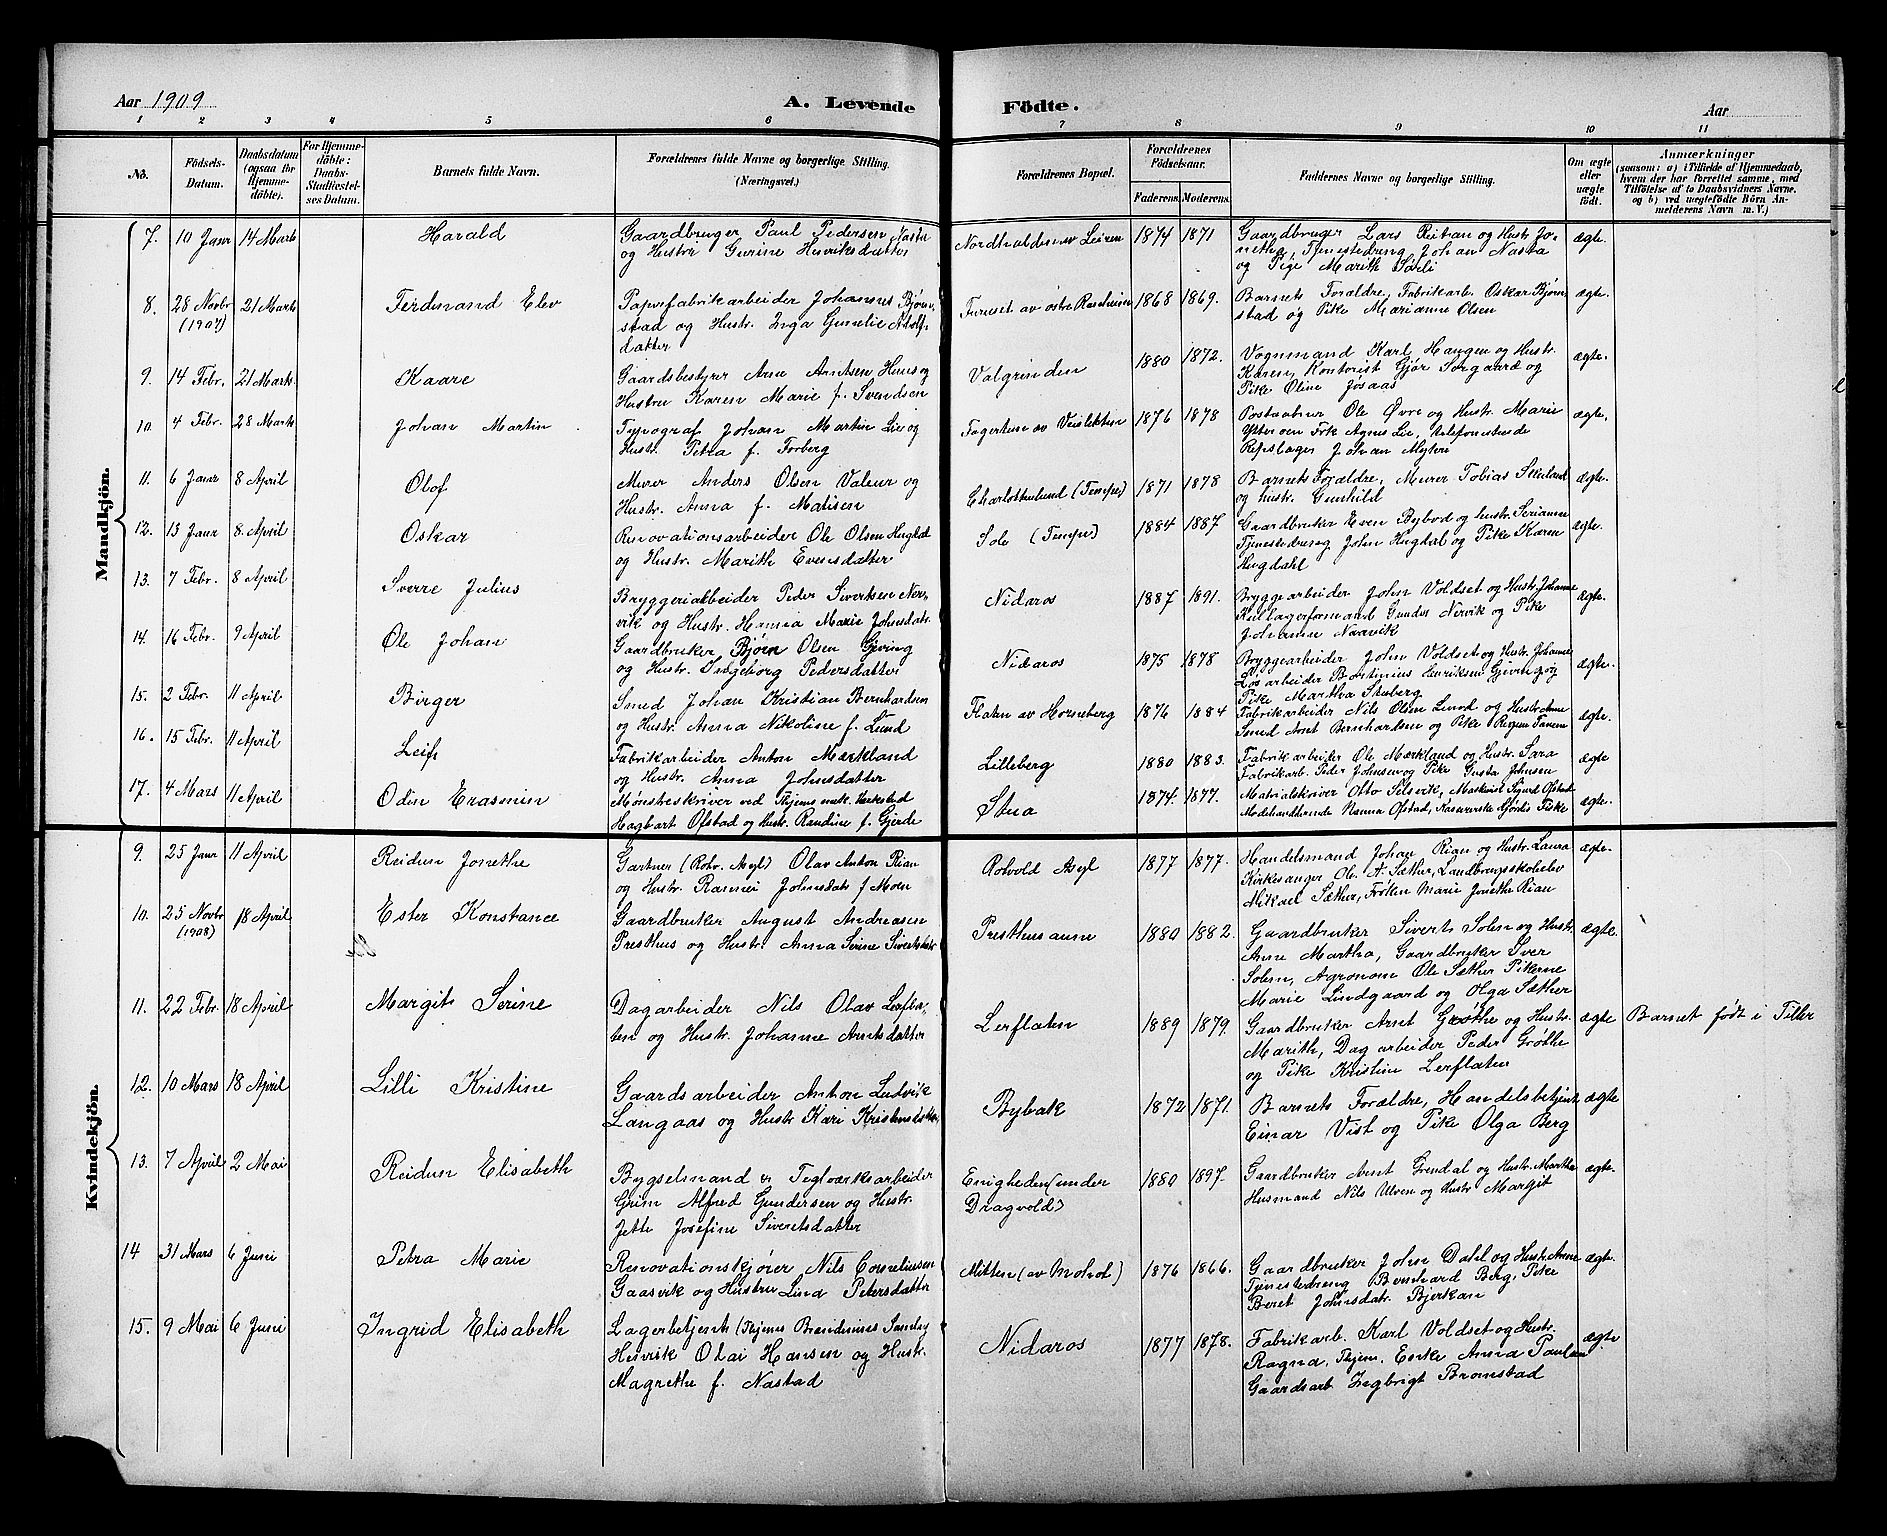 Aar 1909
A. Levende Födte.
Aar
1 2 3 4 5 6 7 8 9 10 11
No.
Födsels-Datum.
Daabsdatum (ogsaa för Hjemme-döbte).
For Hjemme-döbte: Daabs-Stadfæstel-ses Datum.
Barnets fulde Navn.
Forældrenes fulde Navne og borgerlige Stilling. (Næringsvei.)
Forældrenes Bopæl.
Forældrenes Födselsaar.
Faderens. Moderens.
Faddernes Navne og borgerlige Stilling.
Om ægte eller uægte födt.
Anmærkninger
(saasom: a) i Tilfælde af Hjemmedaab, hvem der har forrettet samme, med Tilföielse af to Daabsvidners Navne. og b) ved uægtefödte Börn An-melderens Navn m. V.)
Mandkjön.
7. 10 Janr 14 Marts Harald
Gaardbruger Paul Pedersen
og Hustru Gurine Henriksdatter
Nordhalden av Leiren 1874 1871
Gaardbruger Lars Reitan og Hustr. Jo-
netha, Tjenestedreng Johan Nasta
og Pige Marith Sørli
ægte.
8. 28 Novbr (1907) 21 Marts Ferdinand Elev
Papirfabrikarbeider Johannes Bjørn-
stad og Hustr. Inga Gunelie Adolfs-
datter
Furuset av østre Rosenheim 1868 1869.
Barnets Forældre, Fabrikarb. Oskar Bjørn-
stad og Pike Marianne Olsen
ægte.
9. 14 Febr. 21 Marts. Kaare
Gaardsbestyrer Arne Arntsen Huus og
Hustru Karen Marie f. Svendsen
Valgrinden 1880 1872.
Vognmand Karl Haugen og Hustr.
Karen, Kontorist Gjør Sorgaard og
Pike Oline Jøsaas
ægte.
10. 4 Febr. 28 Marts Johan Martin
Typograf Johan Martin Lie og
Hustr. Petra f. Forberg
Fagertun av Veisletten 1876 1878
Postaabner Ole Øvre og Hustr. Marie
Ytterøen Frk Agnes Lie, telefonistinde
Repslager Johan Myhre
ægte.
11. 6 Janr 8 April Olof
Murer Anders Olsen Valeur og
Hustr. Anna f. Matisen
Charlottenlund (Tempe) 1871 1878
Barnets Forældre, Murer Tobias
og hustr. Gunhild
ægte.
12. 13 Janr 8 April Oskar
Renovationsarbeider Ole Olsen Hugdal
og Hustr. Marith Evensdatter
Sole (Tempe) 1884 1887
Gaardbruker Even Bybod og hustr. Serianna
Tjenestedreng John Hugdal og Pike Karen
Hugdahl
ægte.
13. 7 Febr. 8 April Sverre Julius
Bryggeriarbeider Peder Sivertsen Ner-
vik og Hustr. Hanna Marie Johnsdatr.
Nidaros 1887 1891.
Bryggearbeider John Voldset og Hustr. Johanne
Kullagerformand Gunder Nervik og Pike
Johanne Naavik
ægte.
14. 16 Febr. 9 April Ole Johan
Gaardbruker Bjørn Olsen Gjering
og Hustr. Ingeborg Pedersdatter
Nidaros 1875 1878
Bryggearbeider John Voldset og Hustr. Johanne
Løsarbeider Henriksen Gjering og
Pike Martha Stuberg
ægte.
15. 2 Febr. 11 April Birger
Smed Johan Kristian Bernhardsen
og Hustr. Anna Nikoline f. Lund
Flaten av Horneberg 1876 1884
Fabrikarbeider Nils Olsen Lund og Hustr. Anne
Smed Arnt Bernhardsen og Pike
ægte.
16. 15 Febr. 11 April Leif
Fabrikarbeider Anton Markland
og Hustr. Anna Johnsdatter
Lilleberg 1880 1883.
Fabrikarbeider Ole Markland og Hustr. Sara
Fabrikarb. Peder Johnsen og Pike Gusta Johnsen
ægte
17. 4 Mars 11 April Odin Erasmin
Mønsbeskriver ved Thjems mek. Verksted
Hagbart Ofstad og Hustr. Randine f. Gjerde
Stua 1874. 1877.
Materialskriver Otto Selsvik, Maskinist Sigurd Ofstad
Modehandlerinde Nanna Ofstad, Kasererske Hjørdis Fiske
ægte.
Kvindekjön.
9. 25 Janr 11 April Reidun Jonethe
Gartner (Rotv. Asyl) Olav Anton Rian
og Hustr. Rannei Johnsdatr f Moen
Rotvold Asyl 1877 1877.
Handelsmand Johan Rian og Hustr. Laura
Kirkesanger Ole A. Sæther, Landbrugsskoleelev
Mikael Sæther, Frøken Marie Jonethe Rian
ægte.
10. 25 Novbr (1908) 18 April Ester Konstance
Gaardbruker August Andreasen
Presthus og Hustr. Anna Serine Sivertsdatr
Presthusaune 1880 1882.
Gaardbruker Sivert Solem og Hustr.
Anne Martha, Gaardbruker Iver
Solem, Agronom Ole Sæther Pikerne
Marie Lindgaard og Olga Sæther
ægte.
11. 22 Febr. 18 April Margit Serine
Dagarbeider Nils Olav Lerfla-
ten og Hustr. Johanne Arntsdatter
Lerflaten 1889 1879.
Gaardbruker Arnt Grøthe og Hustr.
Marith, Dagarbeider Peder Grøthe
og Pike Kristine Lerflaten
ægte
Barnet født i Tiller
12. 10 Mars 18 April Lilli Kristine
Gaardsarbeider Anton Ludvik
Langaas og Hustr Kari Kristensdatter
Bybak 1872 1871.
Barnets Forældre, Handelsbetjent
Einar Vist og Pike Olga Berg
ægte
13. 7 April 2 Mai Reidun Elisabeth
Bygselmand & Teglværksarbeider
Grim Alfred Gundersen og Hustr.
Jette Josefine Siveretsdatter
Enigheden (under
Dragvold)
1880 1897.
Gaardbruker Arnt Grendal og Hustr. Martha
Husmand Nils Ulven og Hustr Margit
ægte.
14 31 Mars 6 Juni Petra Marie
Renovationskjører Nils Corneliusen
Gaasvik og Hustru Lina Petersdatter
Mitten (av Moholt) 1876 1866.
Gaardbruker John Dahl og Hustr. Anne
Tjenestedreng Bernhard Berg, Pike
Beret Johnsdatr. Bjerkan
ægte.
15. 9 Mai 6 Juni Ingrid Elisabeth
Lagerbetjent (Thjems
Henrik Olai Hansen og Hustr.
Magrethe f. Nastad
Nidaros 1877 1878.
Fabrikarb. Karl Voldset og Hustr.
Ragna, Thjem. Enke Anna Paulsen
Gaardsarb Ingbrigt Bromstad
ægte.